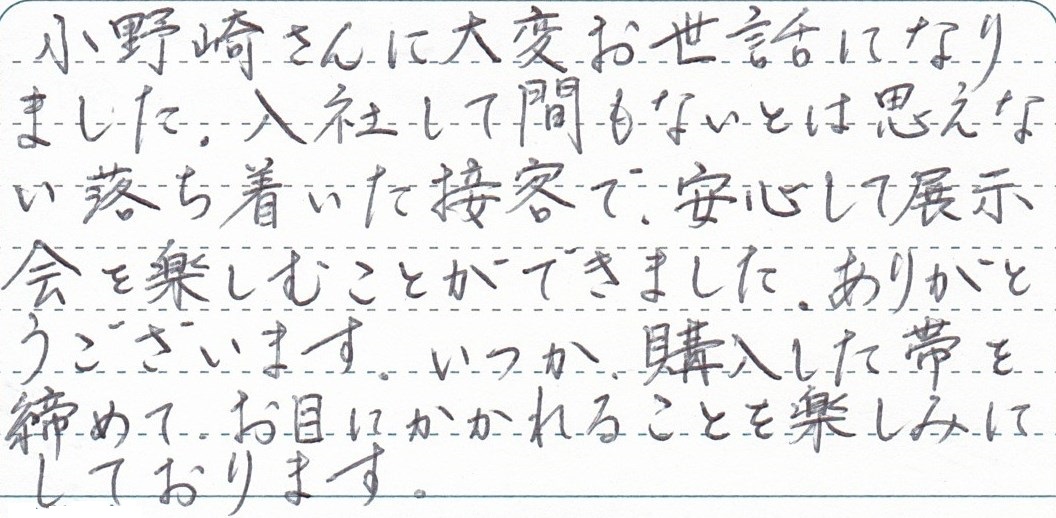 小野崎さんに大変お世話になり
ました。入社して間もないとは思えな
い落ち着いた接客で、安心して展示
会を楽しむことができました。ありがと
うございます。いつか、購入した帯を
締めて、お目にかかれることを楽しみに
しております。